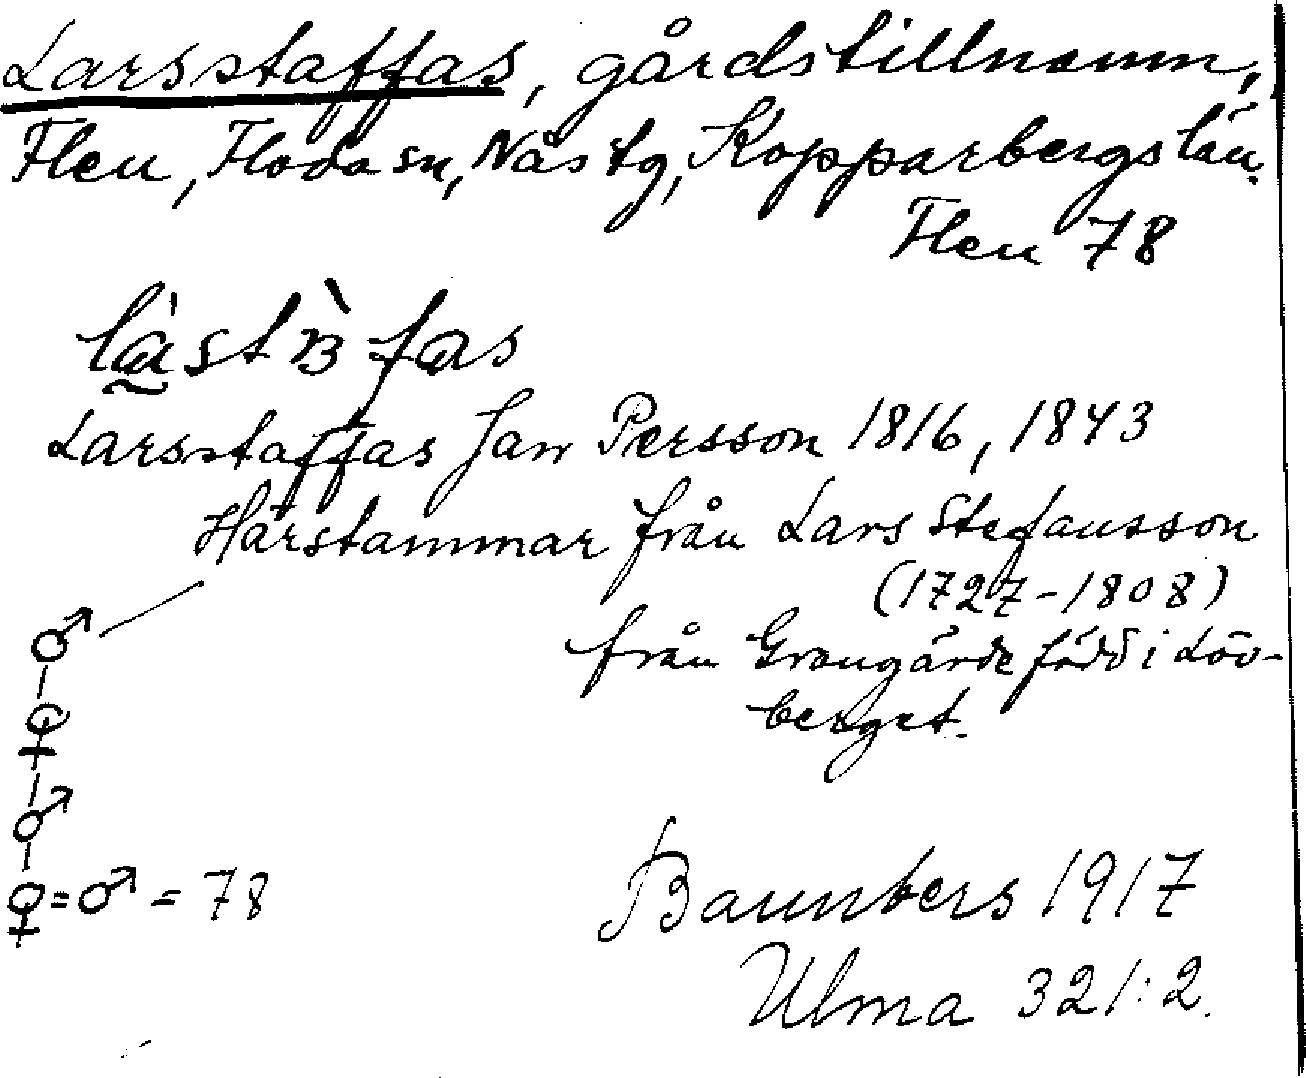 Larsstaffas, gårdstillnamn,
Flen, Floda sn, Nås tg, Kopparbergs län.
Flen 78
Larsstaffas Jan Persson 1816, 1843
Härstammar från Lars Stefansson
(1727-1808)
från Grangärde född i Löv-
berget.
♂
♀
♂
♀=♂ = 78
1917
Ulma 321:2.